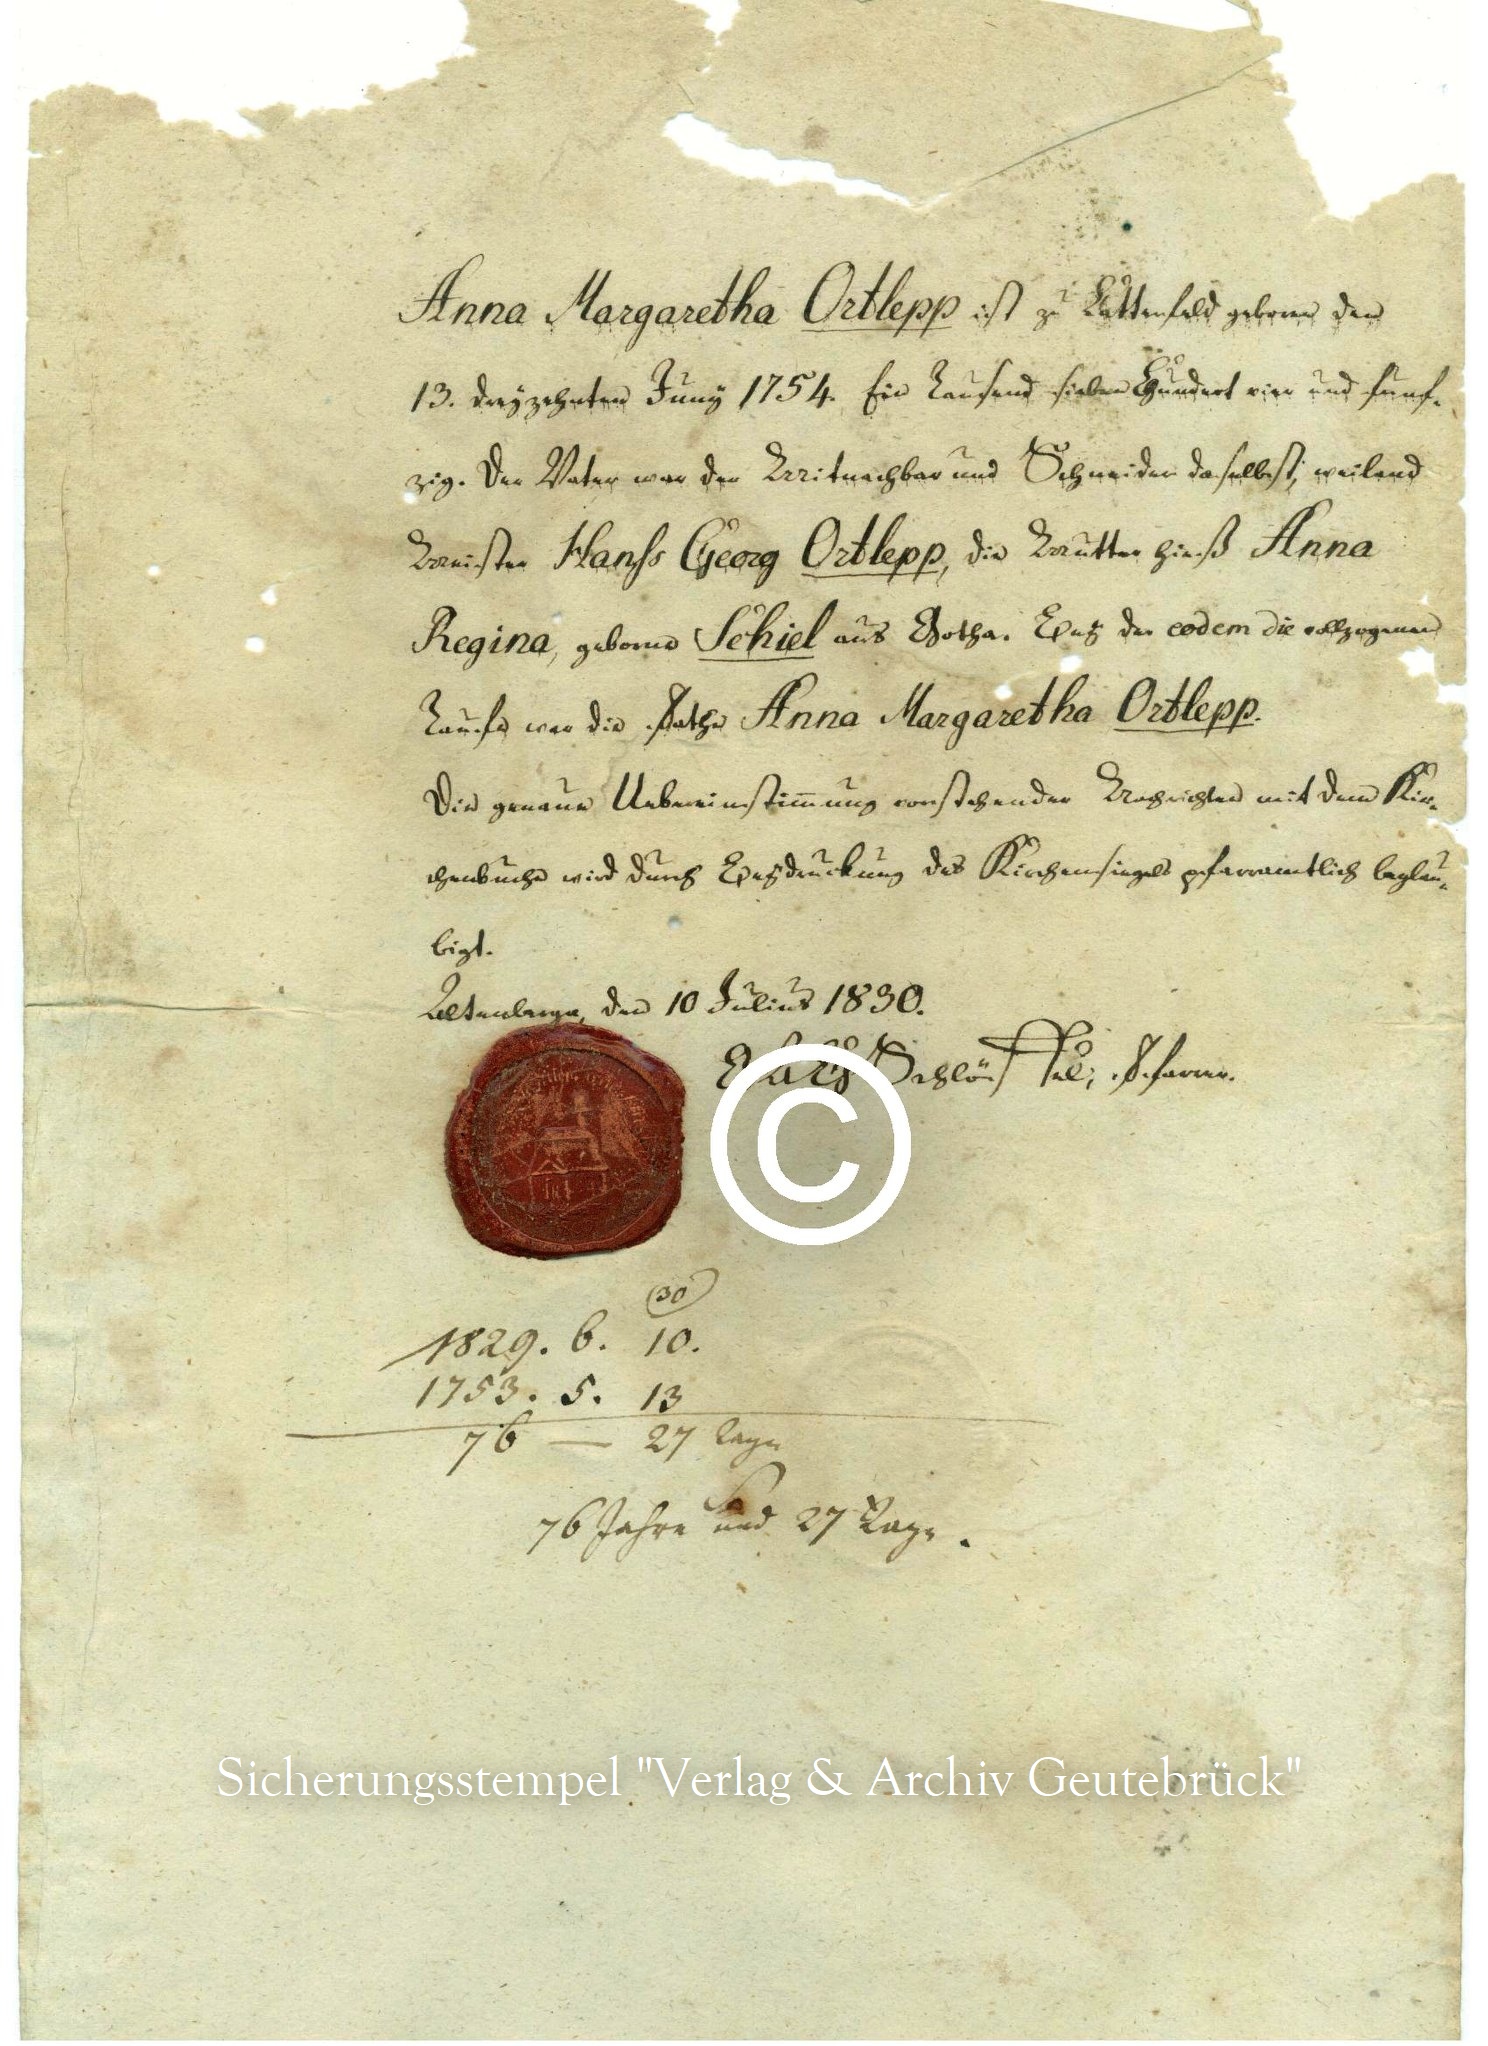 Anna Margaretha Ortlepp ist zu Kattenfeld geboren den
13. dreyzehnten Juny 1754. Ein Tausend sieben Hundert vier und funf-
zig. Der Vater war der Mitnachbar und Schneider daselbst, weiland
Meister Hanß Georg Ortlepp, die Mutter hieß Anna
Regina, geborne Schiel aus Gotha. Bey der eodem die vollzogenen
Taufe war die Pathe Anna Margaretha Ortlepp.
Die genaue Uebereinstimmung vorstehender Nachrichten mit dem Kir-
chenbuche wird durch Beydruckung des Kirchensiegels pfarramtlich beglau-
bigt.
Altenberga, den 10 Julius 1830.
Schlöffel, Pfarrer.
30
1829. 6. 10.
1753. 5. 13
76 — 27 Tage
76 Jahre und 27 Tage.
©
Sicherungsstempel "Verlag & Archiv Geutebrück"